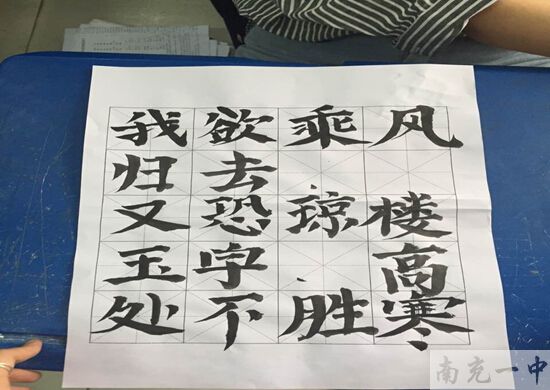 我欲乘风
归去
又恐琼楼
玉宇 高
处不胜寒
南充一中